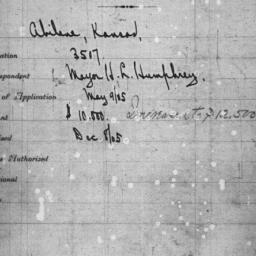 Abilene, Kansas,
ation 3517.
spondent Mayor H. L. Humphrey.
of Application May 9/05
nt $ 10.000. Increase to $12,500
ised Dec 8/05
s Authorized
ional